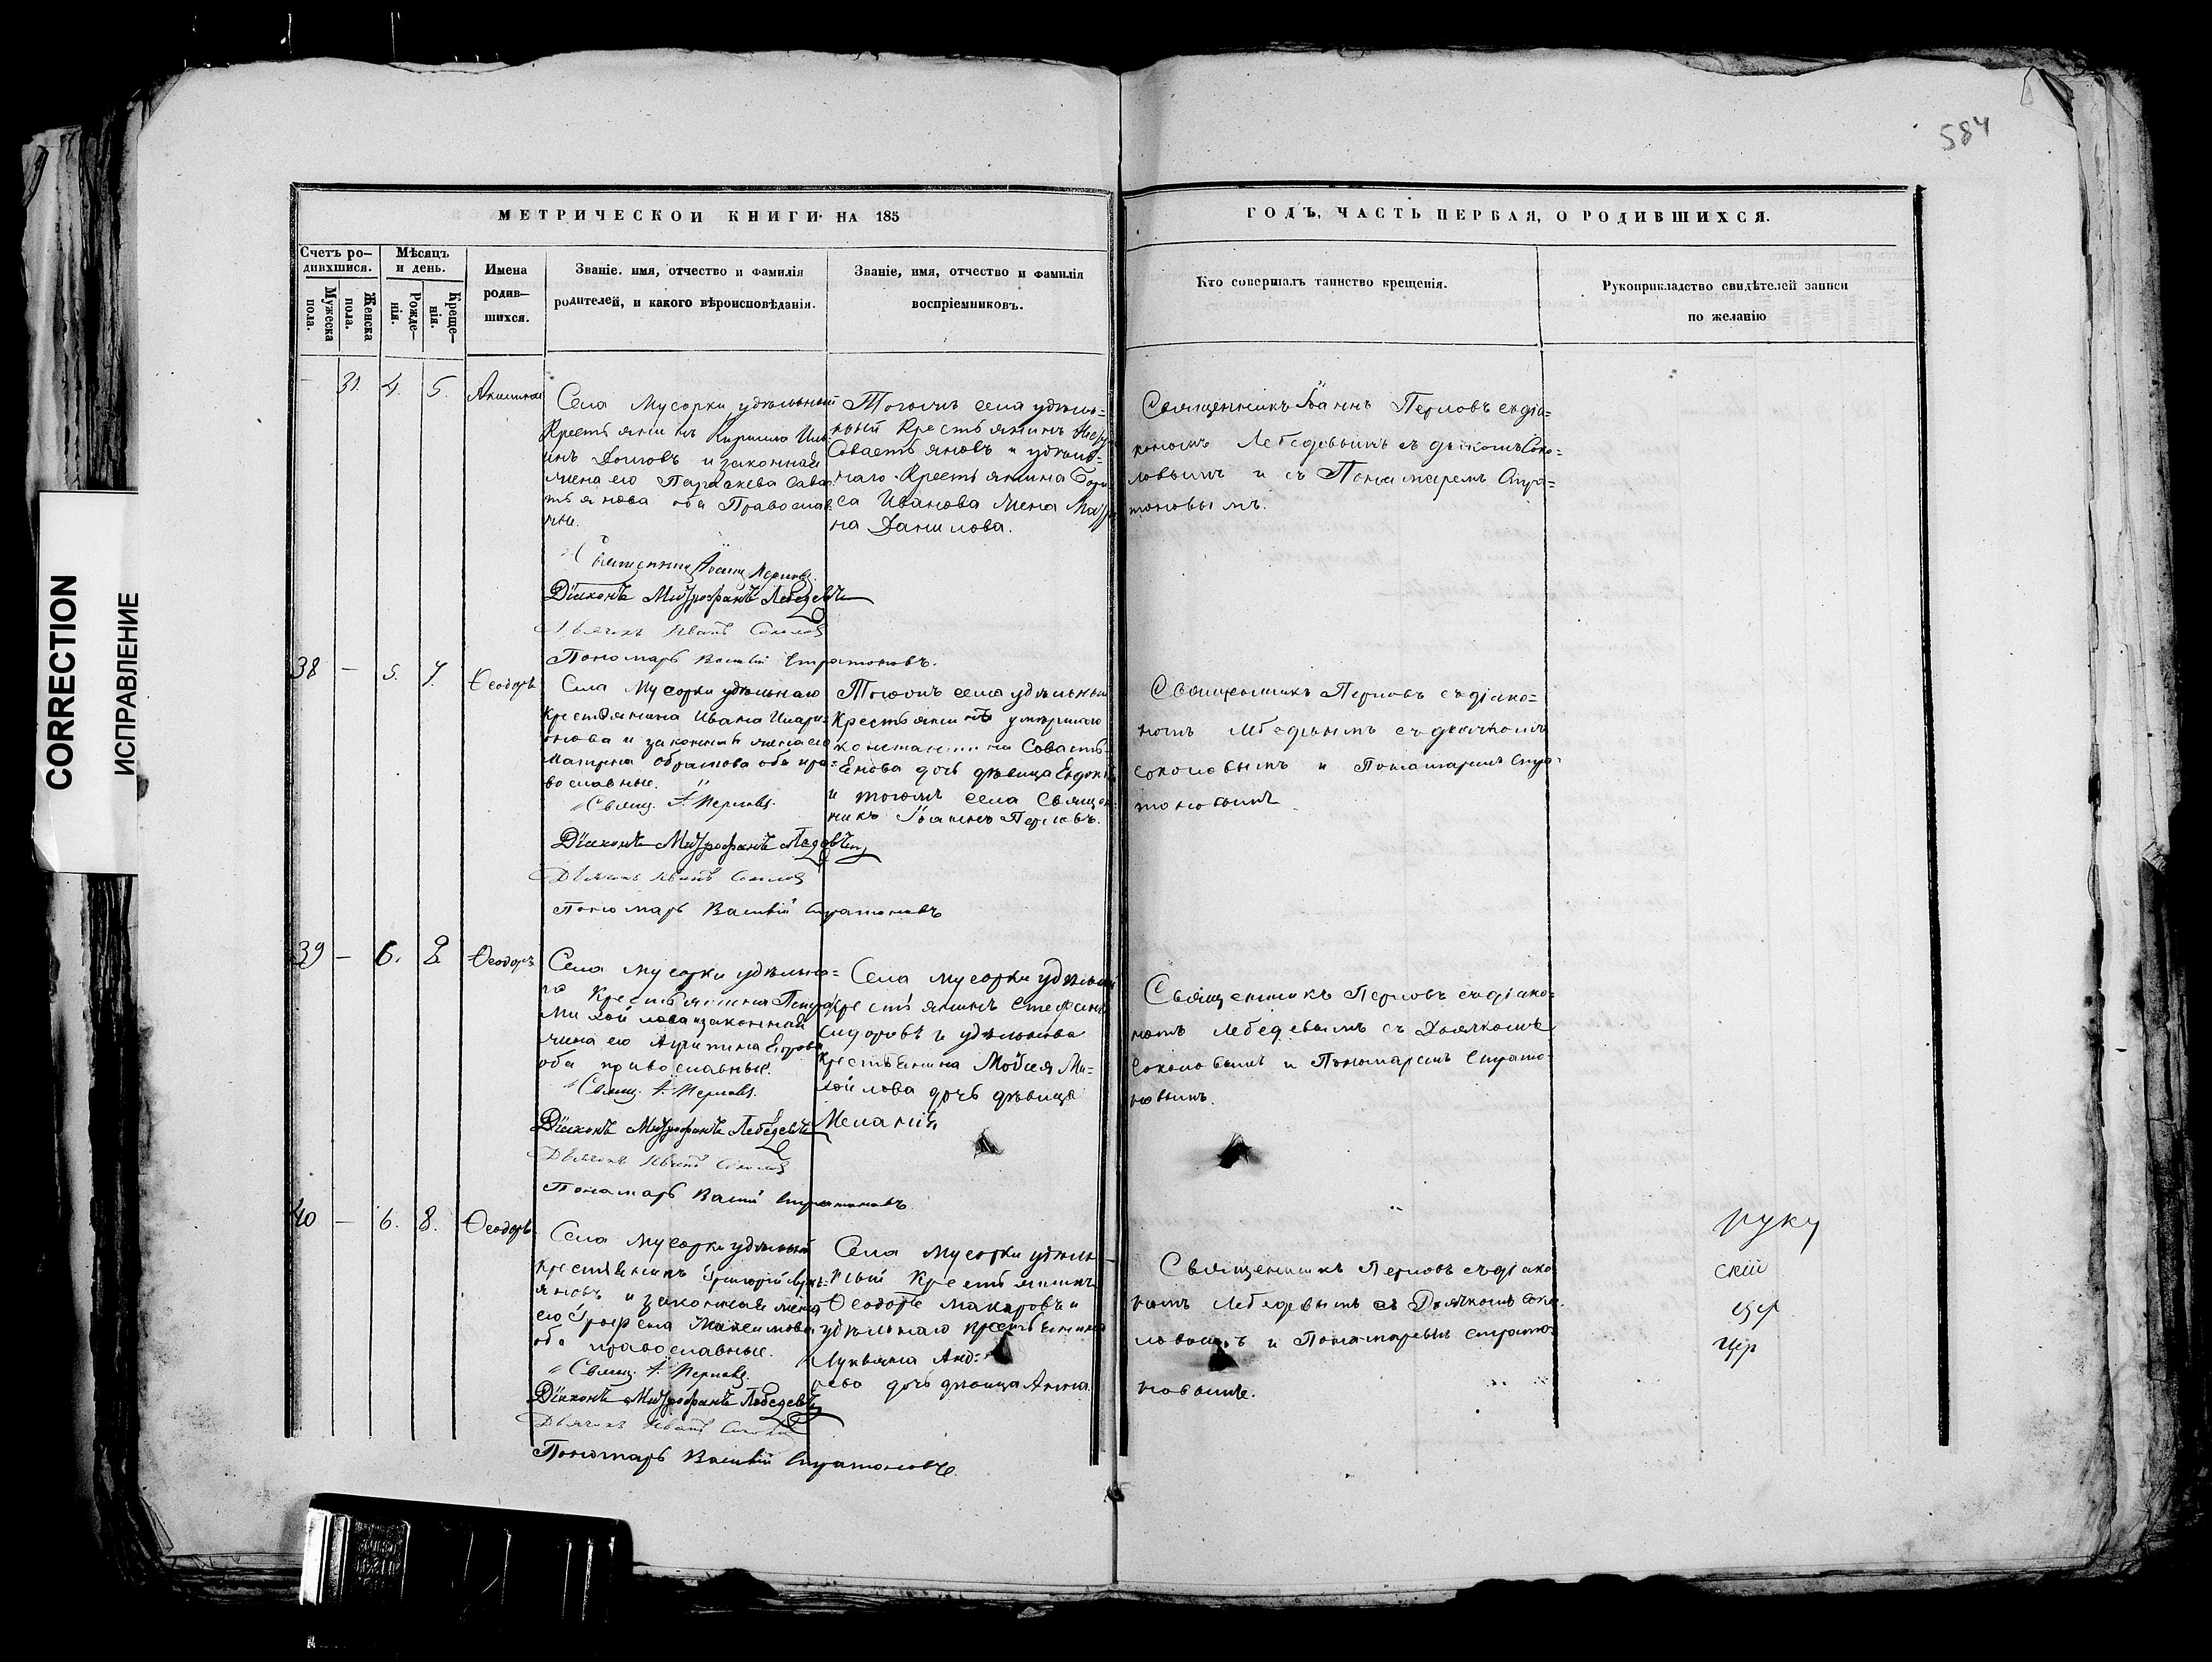 584
CORRECTION
ИСПРАВЛЕНИЕ
МЕТРИЧЕСКОЙ КНИГИ НА 185
ГОДЪ, ЧАСТЬ ПЕРВАЯ, О РОДИВШИХСЯ.
Счетъ ро-
дившихся.
Мужеска пола.
Женска пола.
Мѣсяцъ
и день.
Рожде-
нія.
Креще-
нія.
Имена
родив-
шихся.
Званіе. имя, отчество и фамилія
родителей, и какого вѣроисповѣданія.
Званіе, имя, отчество и фамилія
воспріемниковъ.
Кто совершалъ таинство крещенія.
Рукоприкладство свидѣтелей записи
по желанію
— 31. 4. 5. Акилина
Села Мусорки удѣльный
Крестьянинъ Кирилло Иль
инъ и законная
жена его Параскева Сава-
тьянова оба Православ
ные.
Священникъ Іоаннъ Перловъ
Діаконъ Митрофанъ Лебедевъ
Дьячекъ Иванъ Соколовъ
Пономарь Василій Стратоновъ.
Тогожъ села удѣль=
ный Крестьянинъ
Савастьяновъ и удѣль=
наго Крестьянина Бори
са Иванова жена
на Данилова.
Священникъ Іоаннъ Перловъ съ діа=
кономъ Лебедевымъ съ дьякомъ Соко=
ловымъ и съ Пономаремъ Стра=
тоновымъ.
38 — 5. 7. Ѳеодоръ
Села Мусорки удѣльнаго
крестьянина Ивана Илари=
онова и законная жена его
Матрена оба пра=
вославные.
Свящ. І. Перловъ.
Діаконъ Митрофанъ
Дьячекъ Иванъ Соколовъ
Пономарь Василій Стратоновъ
Тогожъ села удѣльный
Крестьянинъ умершаго
Константина Савасть=
Енова дочь дѣвица
и тогожъ села Священ
никъ Іоаннъ Перловъ.
Священникъ Перловъ съ діако=
номъ съ дьячкомъ
Соколовымъ и Пономаремъ Стра=
тоновымъ
39 — 6. 8. Ѳеодоръ
Села Мусорки удѣльна=
го Крестьянина Петра
Михойлова и законная
жена его Егорова
оба православные.
Свящ. І. Перловъ.
Діаконъ Митрофанъ Лебедевъ
Дьячекъ Иванъ Соколовъ
Пономарь Васий Стратоновъ.
Села Мусорки удѣльный
крестьянинъ Стефанъ
Сидоровъ и удѣльнова
крестьянина Мойсея Ми=
хойлова дочь дѣвица
Меланія
Священникъ Перловъ съ діако=
номъ Лебедевымъ съ Дьячкомъ
Соколовымъ и Пономаремъ Страто
новымъ.
40 — 6. 8. Ѳеодоръ
Села Мусорки удѣльный
крестьянинъ Григорій Лукь=
яновъ и законная жена
его Максимова
оба православные.
Свящ. І. Перловъ.
Діаконъ Митрофанъ Лебедевъ
Дьячекъ Иванъ Соколовъ
Пономарь Василій Стратоновъ.
Села Мусорки удѣль
ный Крестьянинъ
Ѳеодоръ Макаровъ и
удѣльнаго крестьянина
Лукьяна Анд=
рева дочь дѣвица Анна.
Священникъ Перловъ съ діако
номъ Лебедевымъ съ Дьячкомъ Соко
ловымъ и Пономаремъ Страто
новымъ.
руку
скій